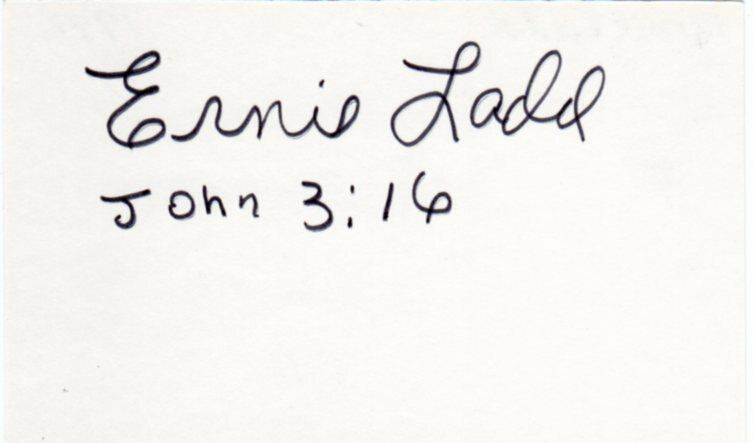 Ernie Ladd
John 3:16